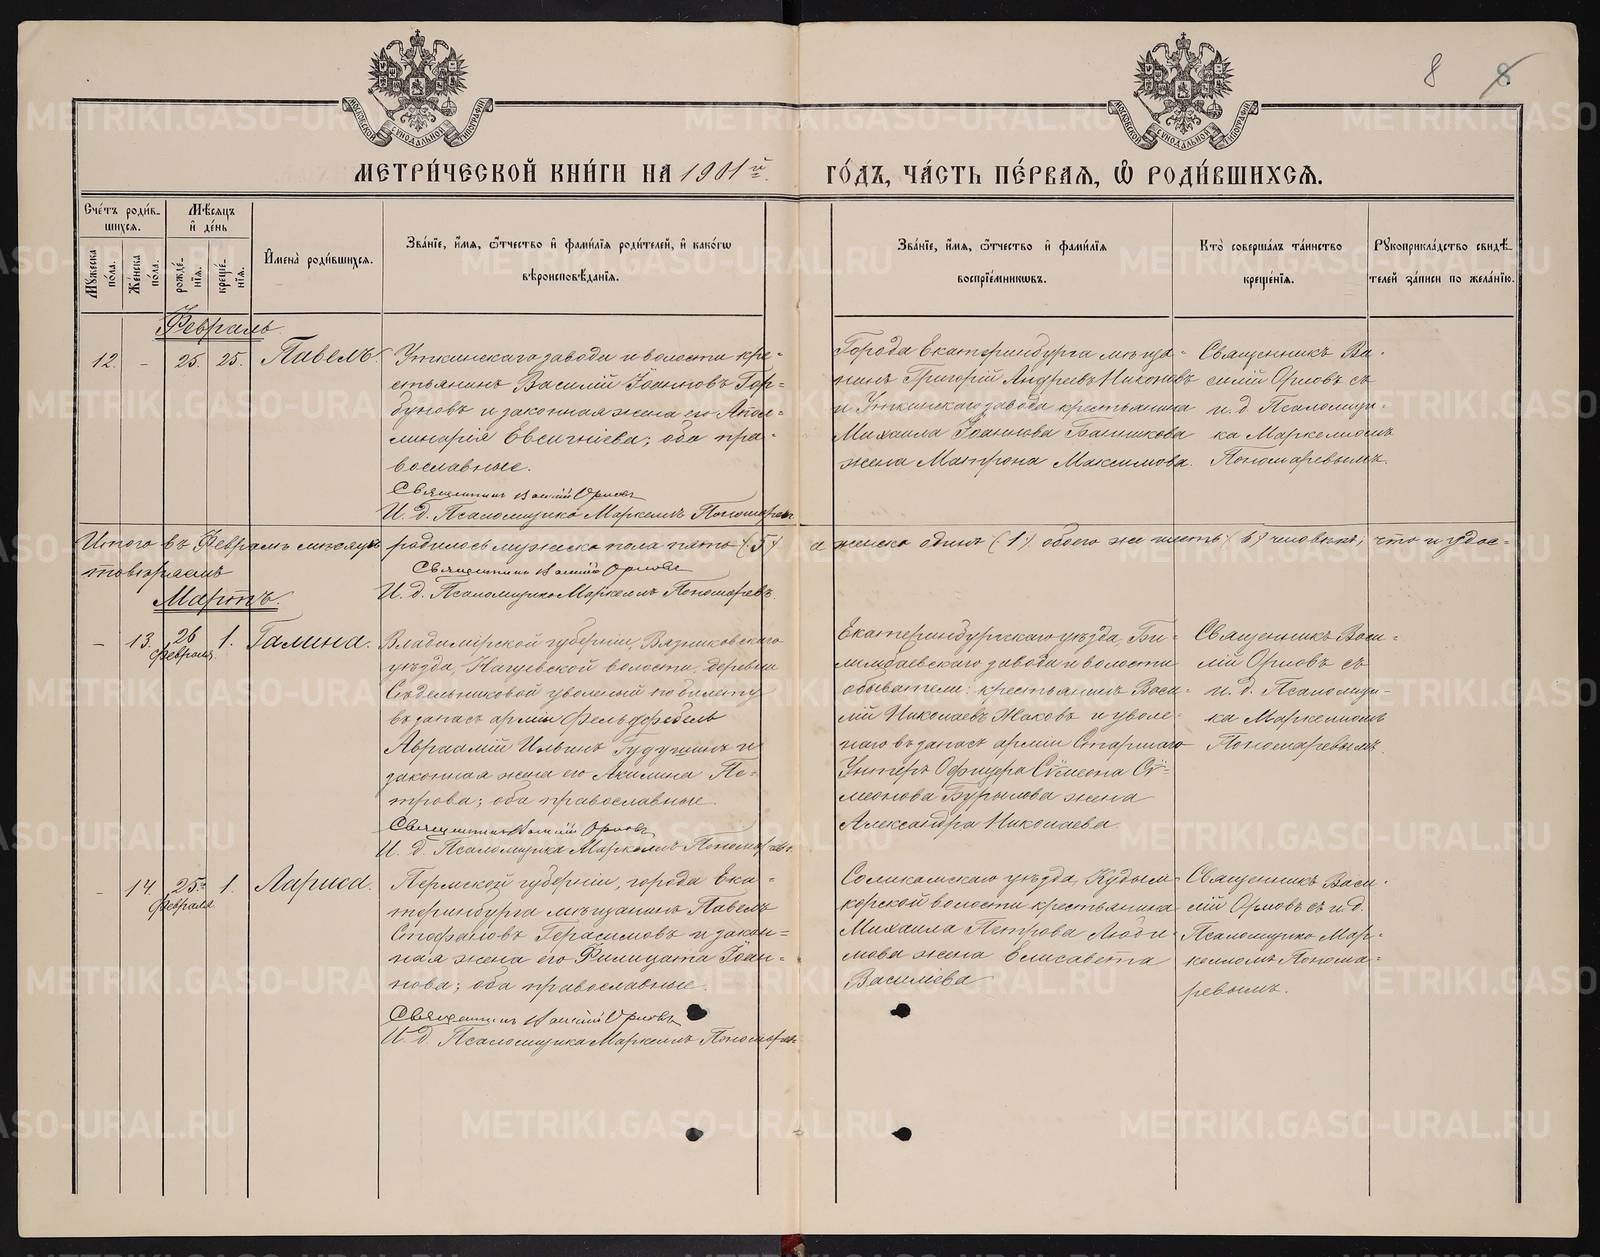 МОСКОВСКОЙ СѴНОДАЛЬНОЙ ТИПОГРАФІИ
МОСКОВСКОЙ СѴНОДАЛЬНОЙ ТИПОГРАФІИ
8 8.
МЕТРИ́ЧЕСКОЙ КНИ́ГИ НА 1901й
ГО́ДЪ, ЧА́СТЬ ПЕ́РВАЯ, Ѡ҆ РОДИ́ВШИХСЯ.
Сче́тъ роди́в-
шихся.
Мꙋжеска по́ла.
Женска по́ла.
Мѣ́сяцъ
и҆ де́нь
рожде́нїя.
креще́нїя.
И҆мена̀ роди́вшихся.
Зва́нїе, и҆́мя, ѻ҆́тчество и҆ фами́лїя роди́телей, и҆ како́гѡ
вѣроисповѣ́данїя.
Зва́нїе, и҆́мя, ѻ҆́тчество и҆ фами́лїя
воспрїе́мниковъ.
Кто̀ соверша́лъ та́инство
креще́нїя.
Рꙋкоприкла́дство свидѣ́-
телей за́писи по жела́нїю.
Февраль
12. - 25. 25. Павелъ
Уткинскаго завода и волости кре-
стьянинъ Василій Іоанновъ Гор-
буновъ и законная жена его Апол-
линарія Евсигніева; оба пра-
вославные.
Священникъ Василій Орловъ
И. д. Псаломщика Маркеллъ Пономаревъ
Города Екатеринбурга мѣща-
нинъ Григорій Андреевъ Никоновъ
и Уткинскаго завода крестьянина
Михаила Іоаннова Банникова
жена Матрона Максимова.
Священникъ Ва-
силій Орловъ съ
и. д. Псаломщи-
ка Маркелломъ
Пономаревымъ.
Итого въ Февралѣ мѣсяцѣ родилось мужеска пола пять (5) а женска одинъ (1) обоего же шесть (6) человѣкъ; что и удос-
товѣряемъ
Священникъ Василій Орловъ
И. д. Псаломщика Маркеллъ Пономаревъ.
Мартъ.
- 13. 26 Февраля. 1. Галина.
Владимірской губерніи, Вязниковскаго
уѣзда, деревни
Сѣдельниковой уволеный по билету
въ запасъ арміи Фельдфебель
Авраамій Ильинъ и
законная жена его Акилина Пе-
трова; оба православные.
Священникъ Василій Орловъ
И. д. Псаломщика Маркеллъ Пономаревъ.
Екатеринбургскаго уѣзда, Би-
лимбаевскаго завода и волости
обыватели: крестьянинъ Васи-
лій Николаевъ Жаковъ и уволе-
наго въ запасъ арміи Старшаго
Унтеръ Офицера Сѵмеона Сѵ-
меонова Бурылова жена
Александра Николаева
Священникъ Васи-
лій Орловъ съ
и. д. Псаломщи-
ка Маркелломъ
Пономаревымъ.
- 14. 25. Февраля 1. Лариса.
Пермской губерніи, города Ека-
теринбурга мѣщанинъ Павелъ
Стефановъ Герасимовъ и закон-
ная жена его Филицата Іоан-
нова; оба православные.
Священникъ Василій Орловъ
И. д. Псаломщика Маркеллъ Пономаревъ
Соликамскаго уѣзда, Кудым-
корской волости крестьянина
Михаила Петрова Люби-
мова жена Елисавета
Василіева
Священникъ Васи-
лій Орловъ съ и. д.
Псаломщика Мар-
келломъ Понома-
ревымъ.
METRIKI.GASO-URAL.RU